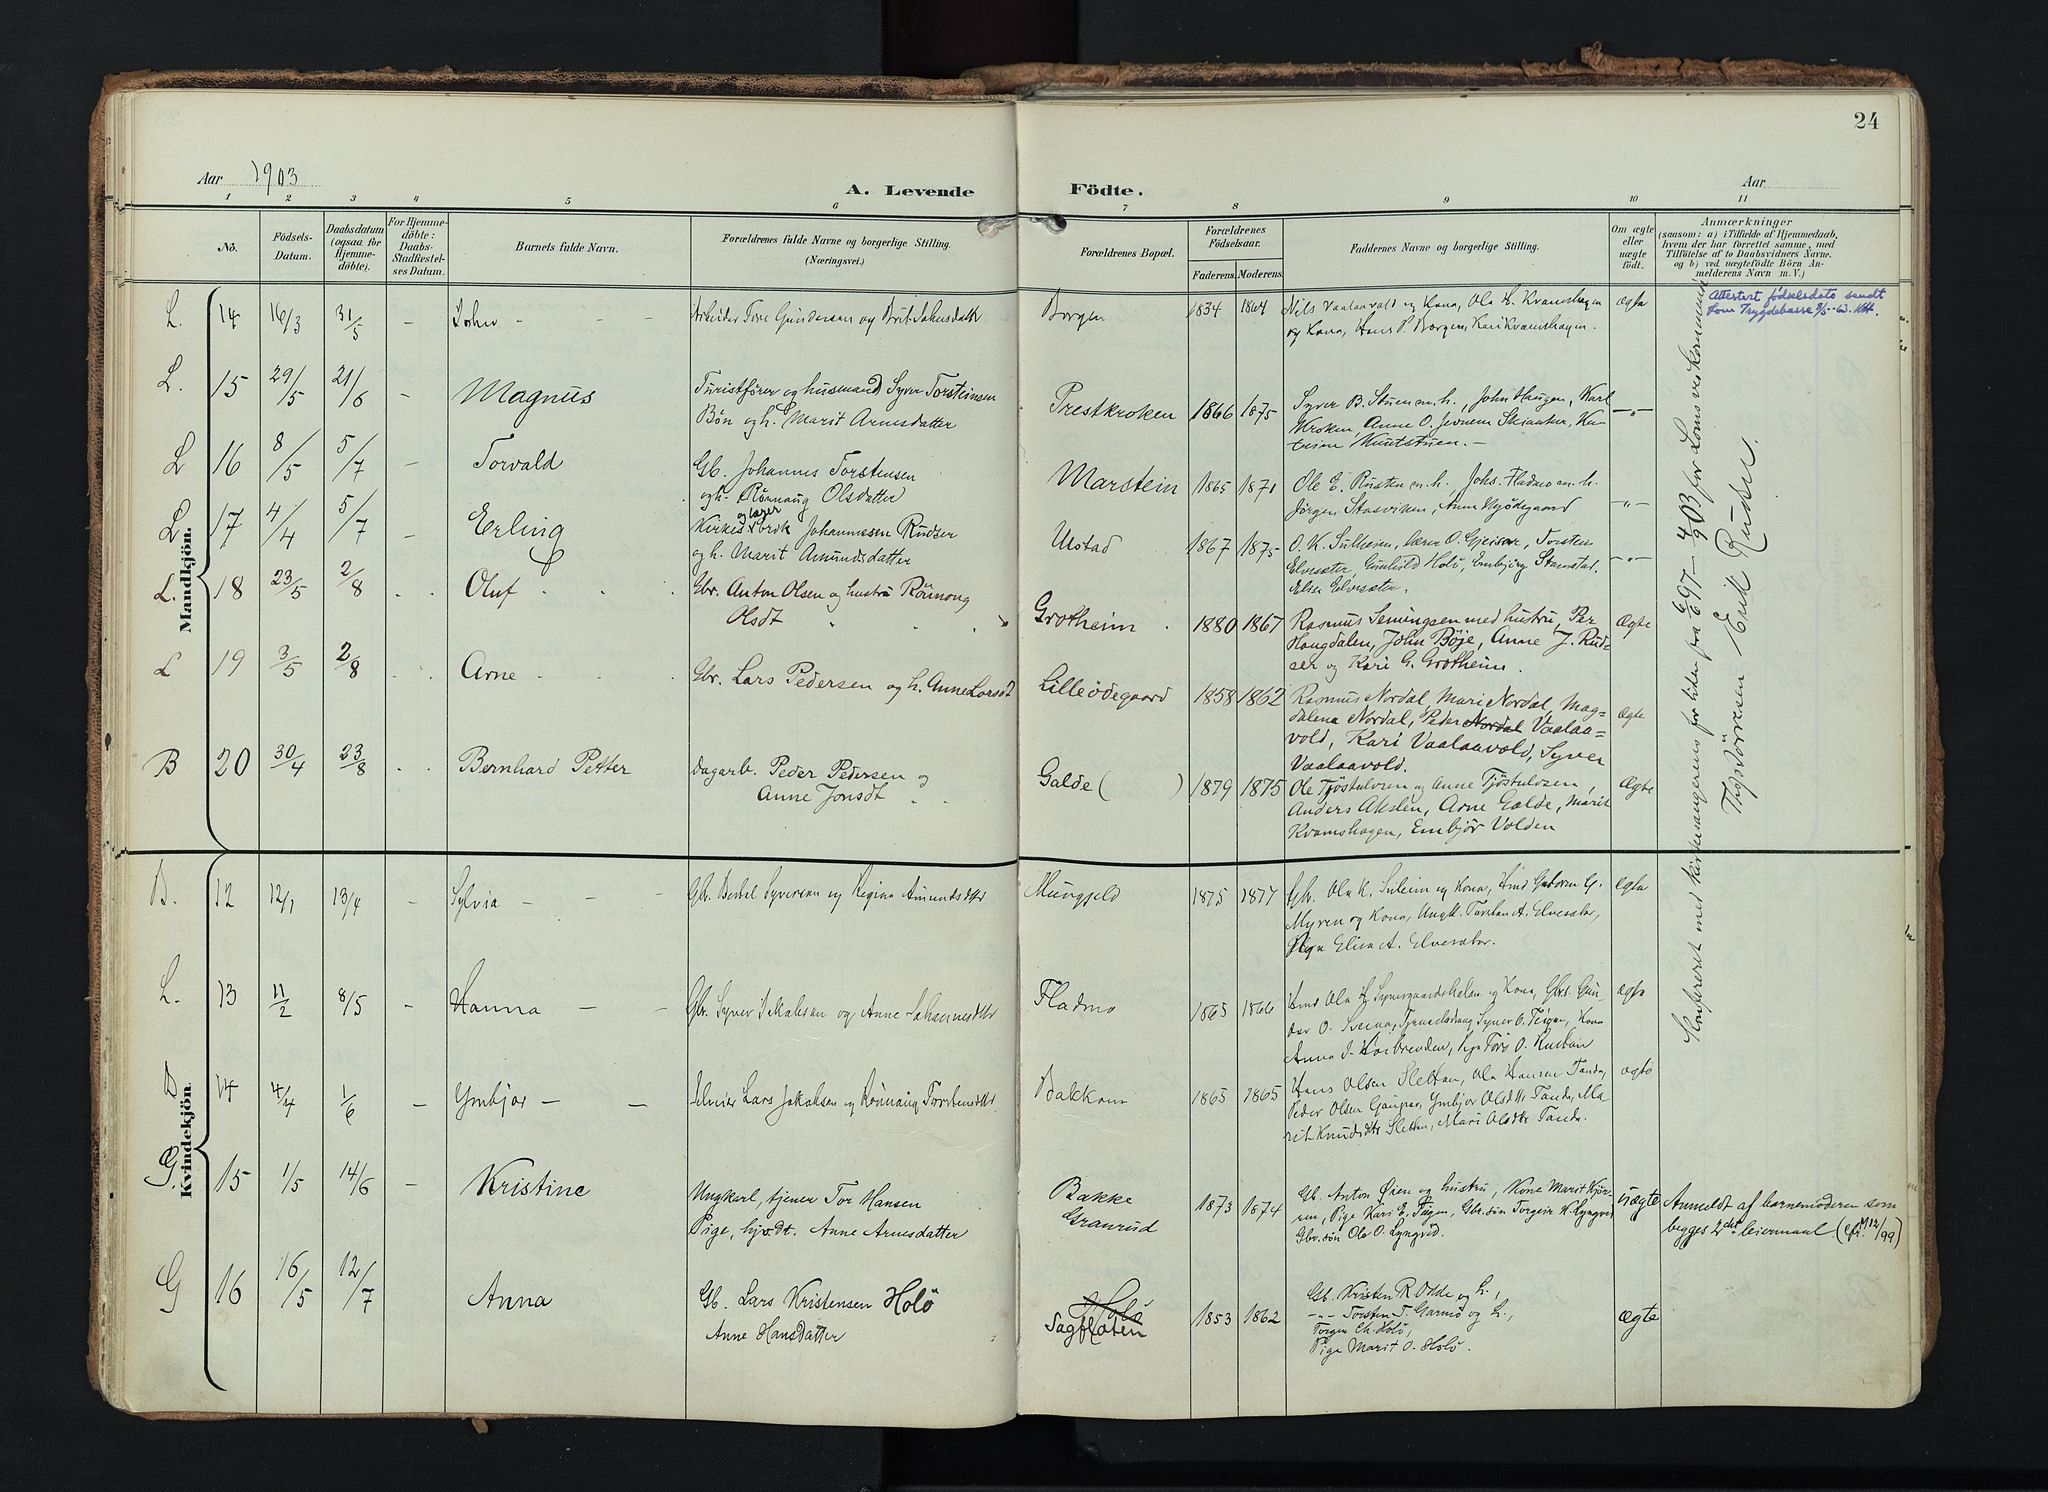 24
Aar 1903
A. Levende Födte.
Aar
1 2 3 4 5 6 7 8 9 10 11
No. Födsels-Datum. Daabsdatum (ogsaa for Hjemmedöbte). For Hjemmedöbte: Daabs-Stadfæstelses Datum. Barnets fulde Navn. Forældrenes fulde Navne og borgerlige Stilling. (Næringsvei.) Forældrenes Bopæl. Forældrenes Födselsaar. Faderens. Moderens. Faddernes Navne og borgerlige Stilling. Om ægte eller uægte født. Anmærkninger (saasom: a) i Tilfælde af Hjemmedaab, hvem der har forrettet samme, med Tilföielse af to Daabsvidners Navne, og b) ved uægtefödte Börn Anmelderens Navn m. V.)
Mandkjön.
L. 14 16/3 31/5 – John – – Arbeider Tore Gundersen og Brit Johnsdatt Borgen 1834 1864 Nils Vaalaavald og Kona, Ola H. Kvamshagen ægte Attestert fødselsdato sendt
og Kona, Hans P. Borgen, Kari Kvamshagen. Lom Trygdekasse
L. 15 29/5 21/6 – Magnus Turistfører og husmand Syver Torsteinsen
Bön og h. Marit Arnesdatter Prestkroken 1866 1875 Syver B. Stuen m. h., John Haugen, Karl –"–
Kroken, Anne O. Jevnem
L 16 8/5 5/7 – Torvald Gb. Johannes Torstensen
og h. Rönnaug Olsdatter Marstein 1865 1871 Ole E. Rusten m. h., Johs. Fladmo m. h. –"–
Jörgen Stasviken, Anne Mjödegaard
L 17 4/4 5/7 Erling Johannessen Rudser
og h. Marit Amundsdatter Ulstad 1867 1875 O. K. Sulheim, Torsten –"–
Elvesæter, Gunhild Holö, Embjörg
Elise Elvesæter.
L. 18 23/5 2/8 Oluf Gbr. Anton Olsen og hustru Rönnong
Olsdt Grotheim 1880 1867 Rasmus Semingsen med hustru, Per Ægte
Hougdalen, John Böje, Anne J. Rud-
ser og Kari G. Grotheim.
L 19 3/5 2/8 Arne Gbr. Lars Pedersen og h. Anne Larsdt Lilleödegaard 1858 1862 Rasmus Nordal, Mari Nordal, Mag- Ægte
dalena Nordal, Peder Nordal Vaalaa-
vold, Kari Vaalaavold, Syver
Vaalaavold.
B 20 30/4 23/8 Bernhard Petter dagarb. Peder Pedersen og
Anne Jonsdt Galde ( ) 1879 1875 Ole Tjöstulvsen og Anne Tjöstulvsen, Ægte
Anders Akslen, Arne Galde, Marit
Kvamshagen, Embjör Volden
Konfereret med kirkesangerens for tiden fra 6/6 97 – 4/9 03 for Loms vedkommende
Thos Sörensen Erik Rudse.
Kvindekjön.
B. 12 12/1 13/4 – Sylvia – – Gbr. Bertel Syversen og Regina Amundsdtr Mungjeld 1875 1877 Gbr. Ola K. Suleim og Kona, ægte
Myren og Kona, Ungk. Torstein A. Elvesæter,
Pige Elisa A. Elvesæter.
L. 13 11/2 8/5 – Hanna – – Gbr. Syver Jakobsen og Anne Johannesdtr Fladmo 1865 1866 ægte
Anna J.
D 14 4/4 1/6 – Ymbjor – – Lars Jakobsen og Rönnaug Torstensdtr. Bakkom 1865 1865 Hans Olsen Sletten, Ola Hansen Tande, ægte
Peder Olsen Gaupar, Ymbjor Olsdtr Tande, Ma-
rit Knudsdtr Sletten, Mari Olsdtr Tande.
G. 15 1/5 14/6 – Kristine Ungkarl, tjener Tor Hansen
Pige, Anne Arnesdatter Bakke
Granrud 1873 1874 Gb. Anton Öien og hustru, Kone Marit Kjör- Uægte Anmeldt af barnemoderen som
ren, Pige Kari E. Teigen, Gbr.sön Torgeir H. Lyngved begges 2det leiermaal (cfr. 12/99)
Gbr.sön Ole O. Lyngved.
G 16 16/5 12/7 Anna Gb. Lars Kristensen Holö
Anne Hansdatter Holö
Sagflaten 1853 1862 Gb. Kristen R. Odde og h., ægte
–"– Torsten T. Garmo og h.,
Torger Ch. Holö,
Pige Marit O. Holö.